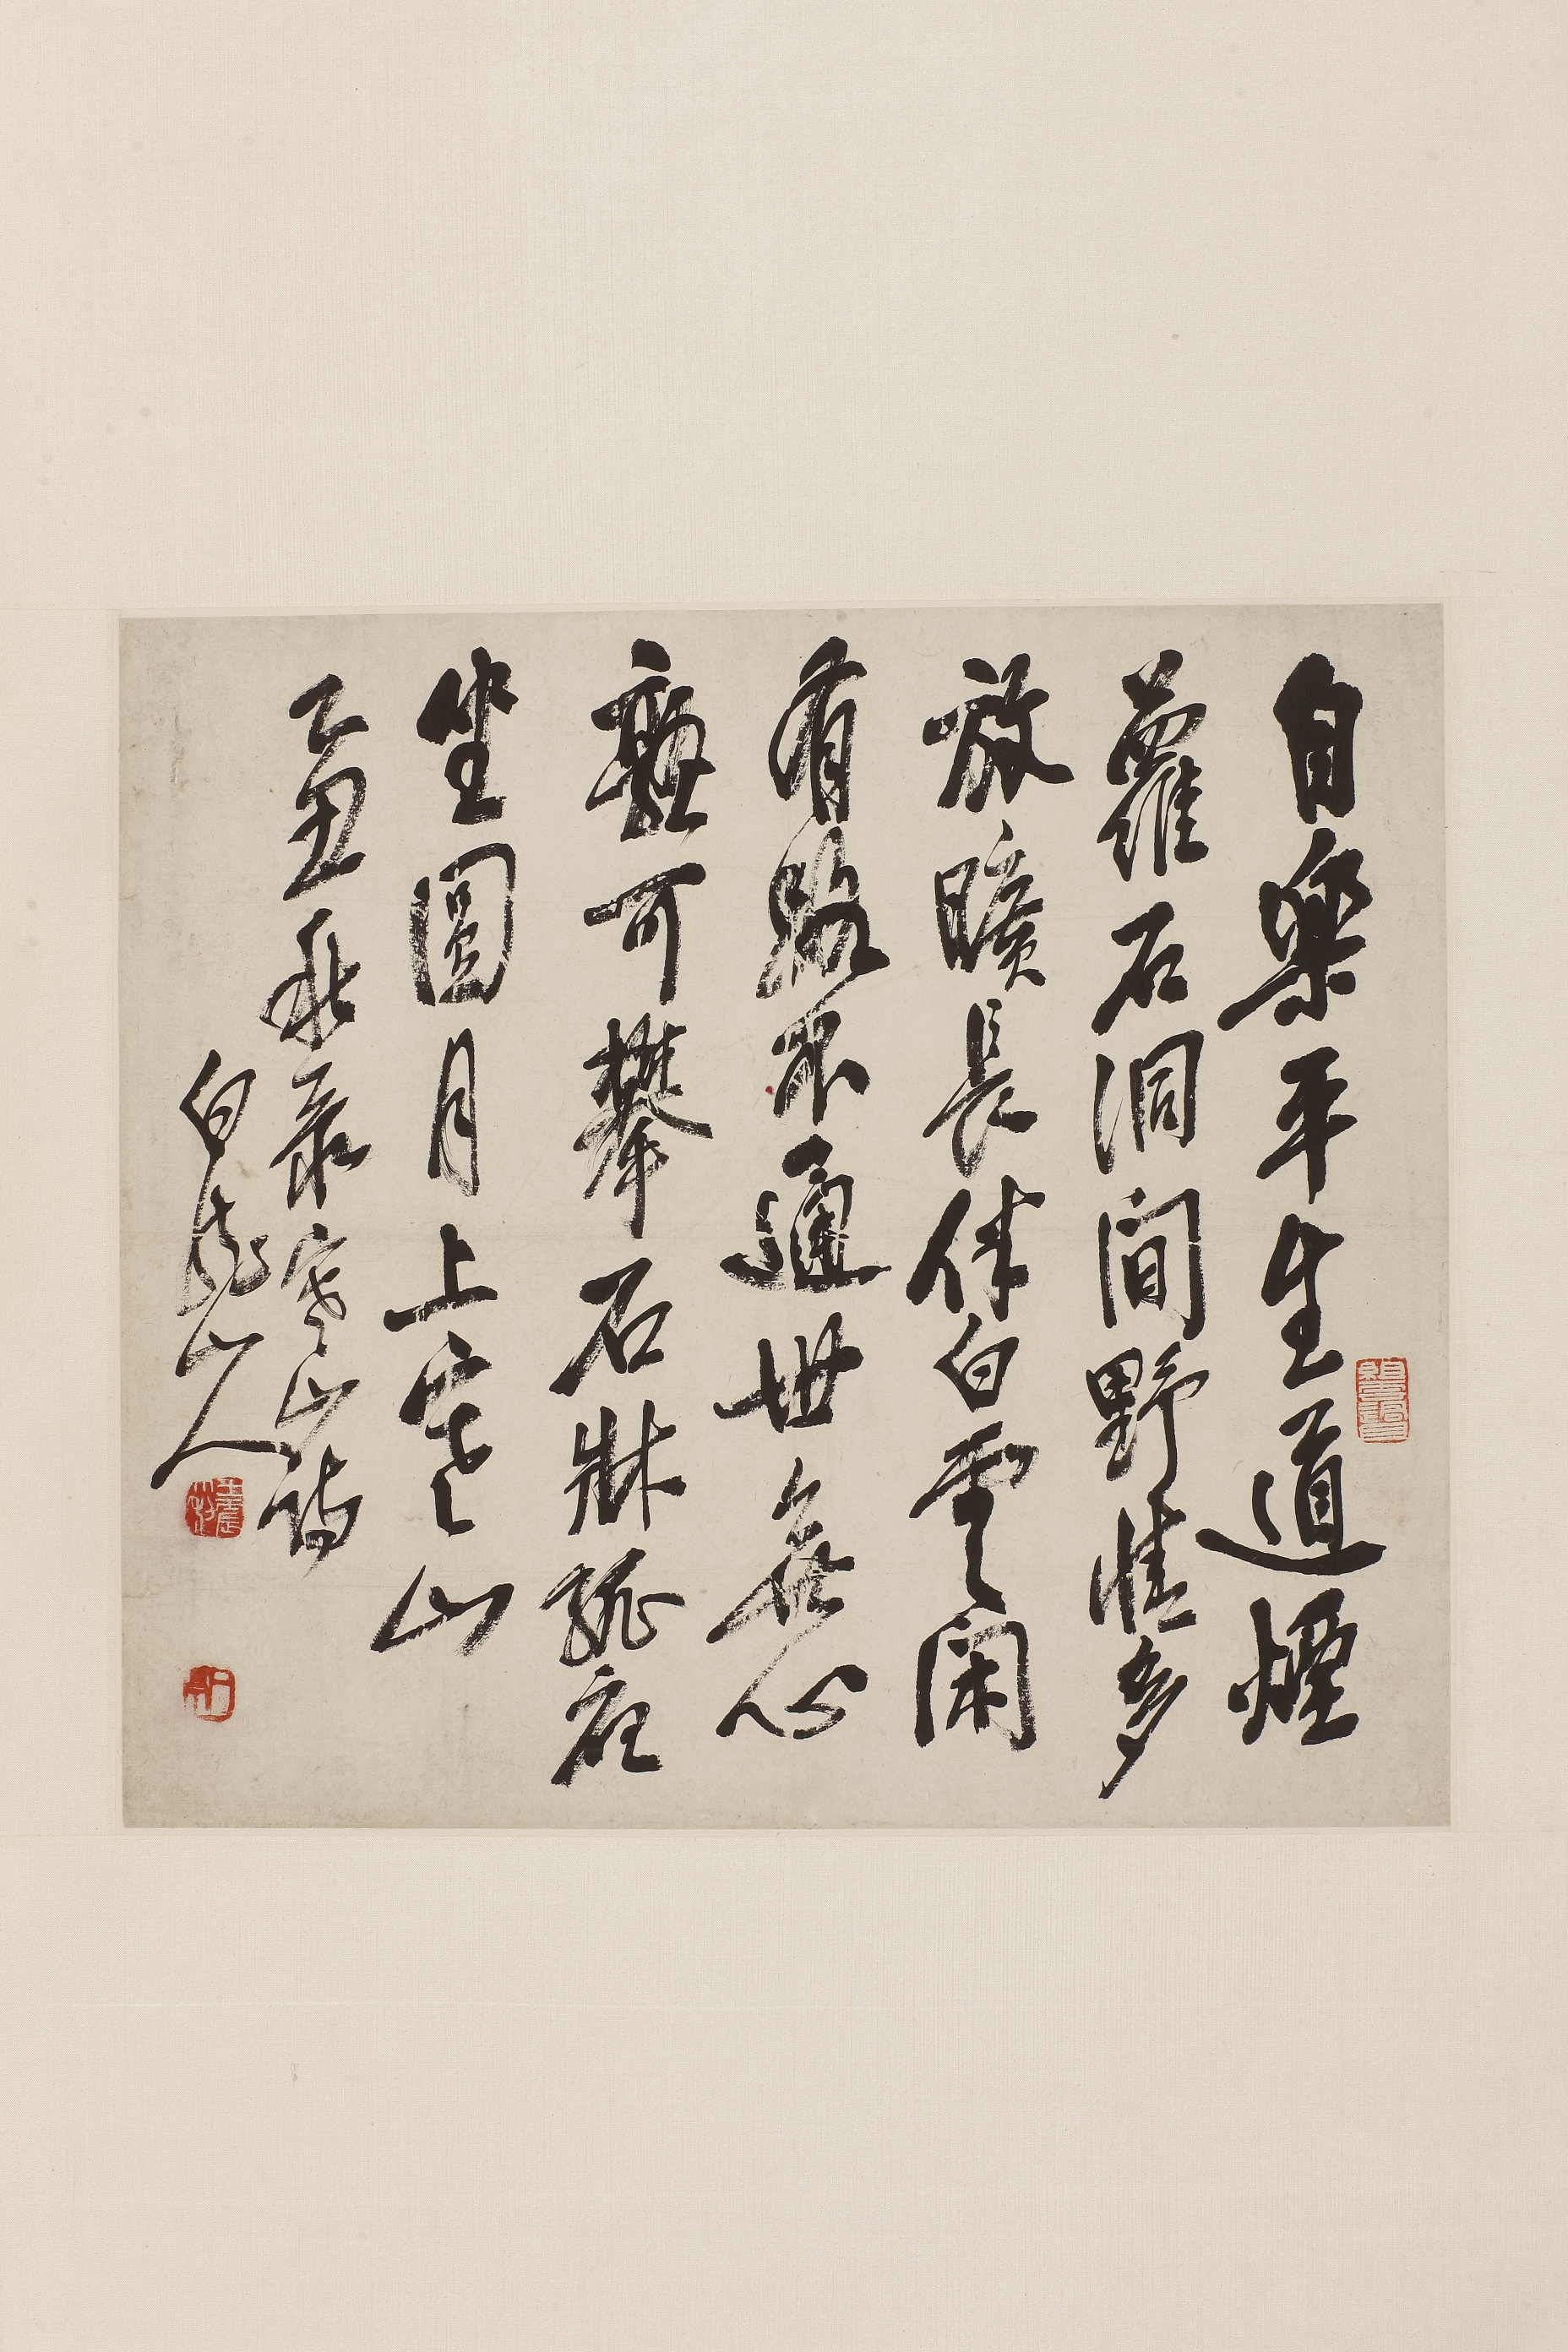 自樂平生道煙
蘿石洞間野情多
放曠長伴白雲閑
有路不通世無心
孰可攀石牀孤夜
坐圓月上寒山
乙丑秋录寒山詩
白龍山人